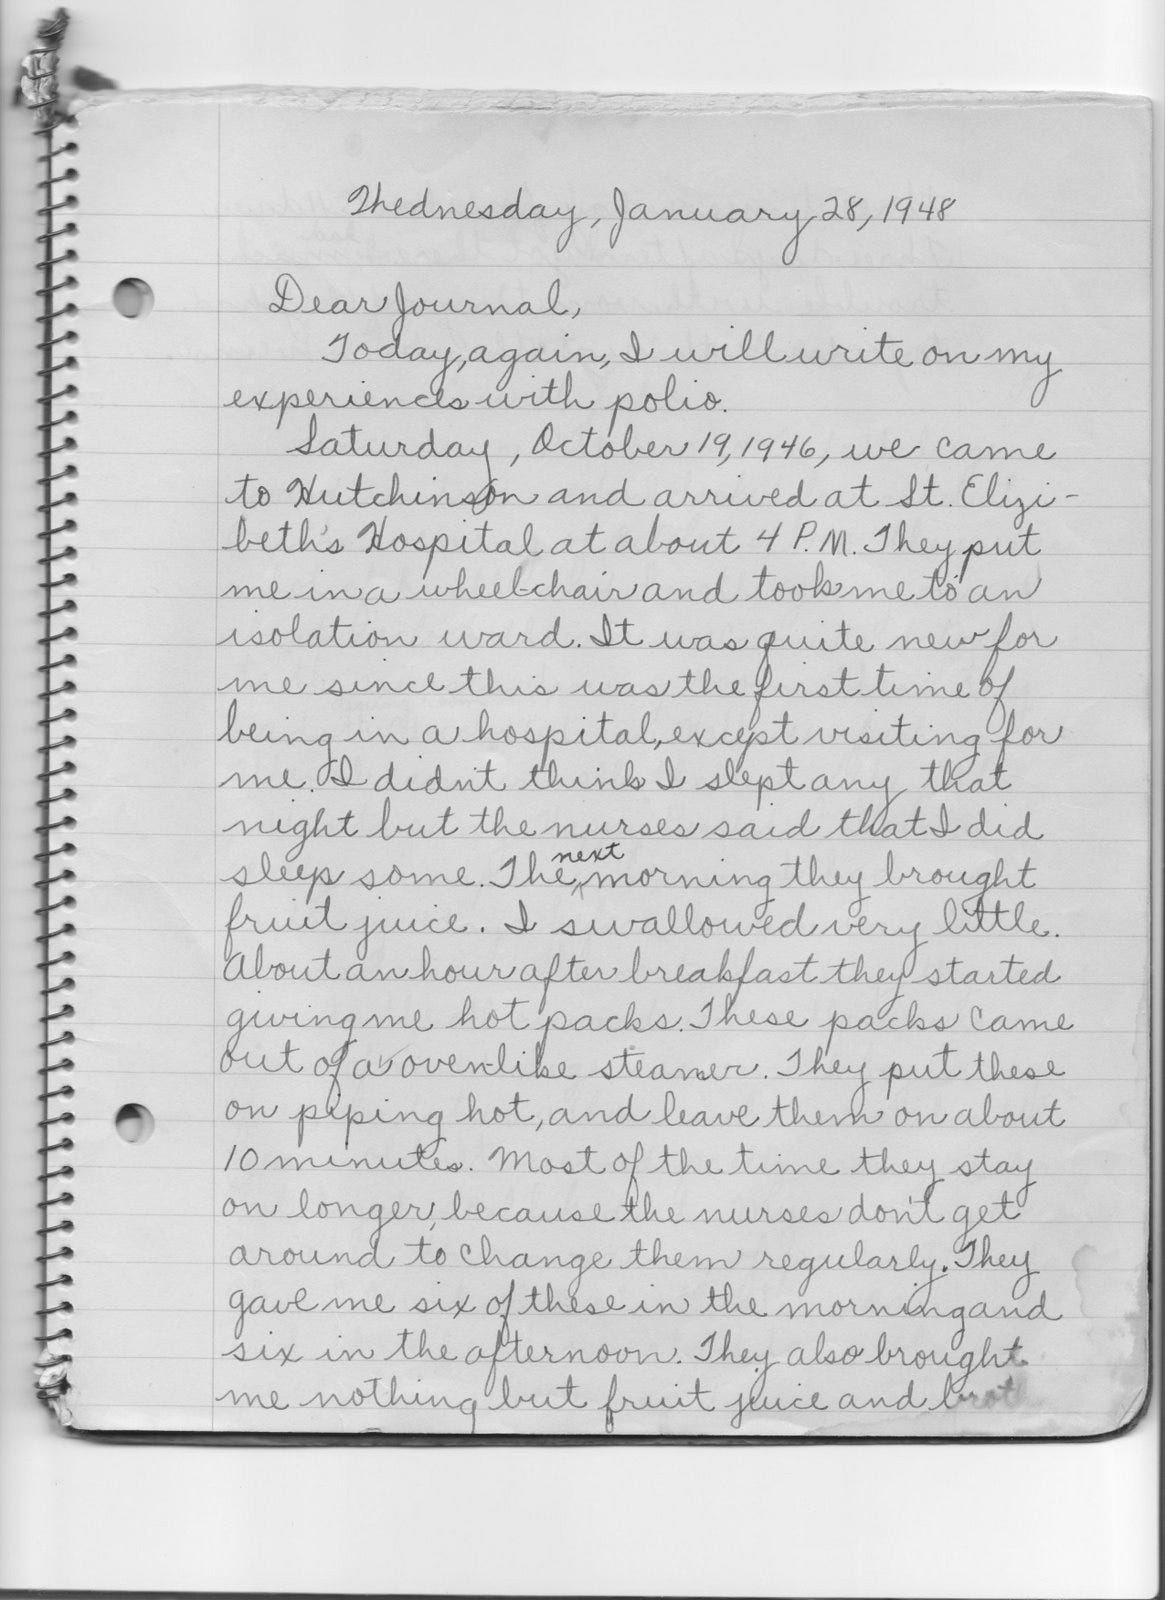 Wednesday, January 28, 1948
Dear Journal,
Today, again, I will write on my
experiences with polio.
Saturday, October 19, 1946, we came
to Hutchinson and arrived at St. Elizi-
beth's Hospital at about 4 P.M. They put
me in a wheel-chair and took me to an
isolation ward. It was quite new for
me since this was the first time of
being in a hospital, except visiting for
me. I didn't think I slept any that
night but the nurses said that I did
sleep some. The next morning they brought
fruit juice. I swallowed very little.
About an hour after breakfast they started
giving me hot packs. These packs came
out of a oven-like steamer. They put these
on piping hot, and leave them on about
10 minutes. Most of the time they stay
on longer, because the nurses don't get
around to change them regularly. They
gave me six of these in the morning and
six in the afternoon. They also brought
me nothing but fruit juice and broth